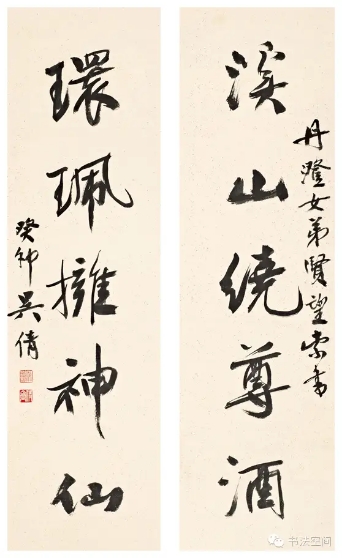 丹澄女弟賢望索書
溪山繞尊酒
環珮擁神仙
癸卯吳倩
书法空间